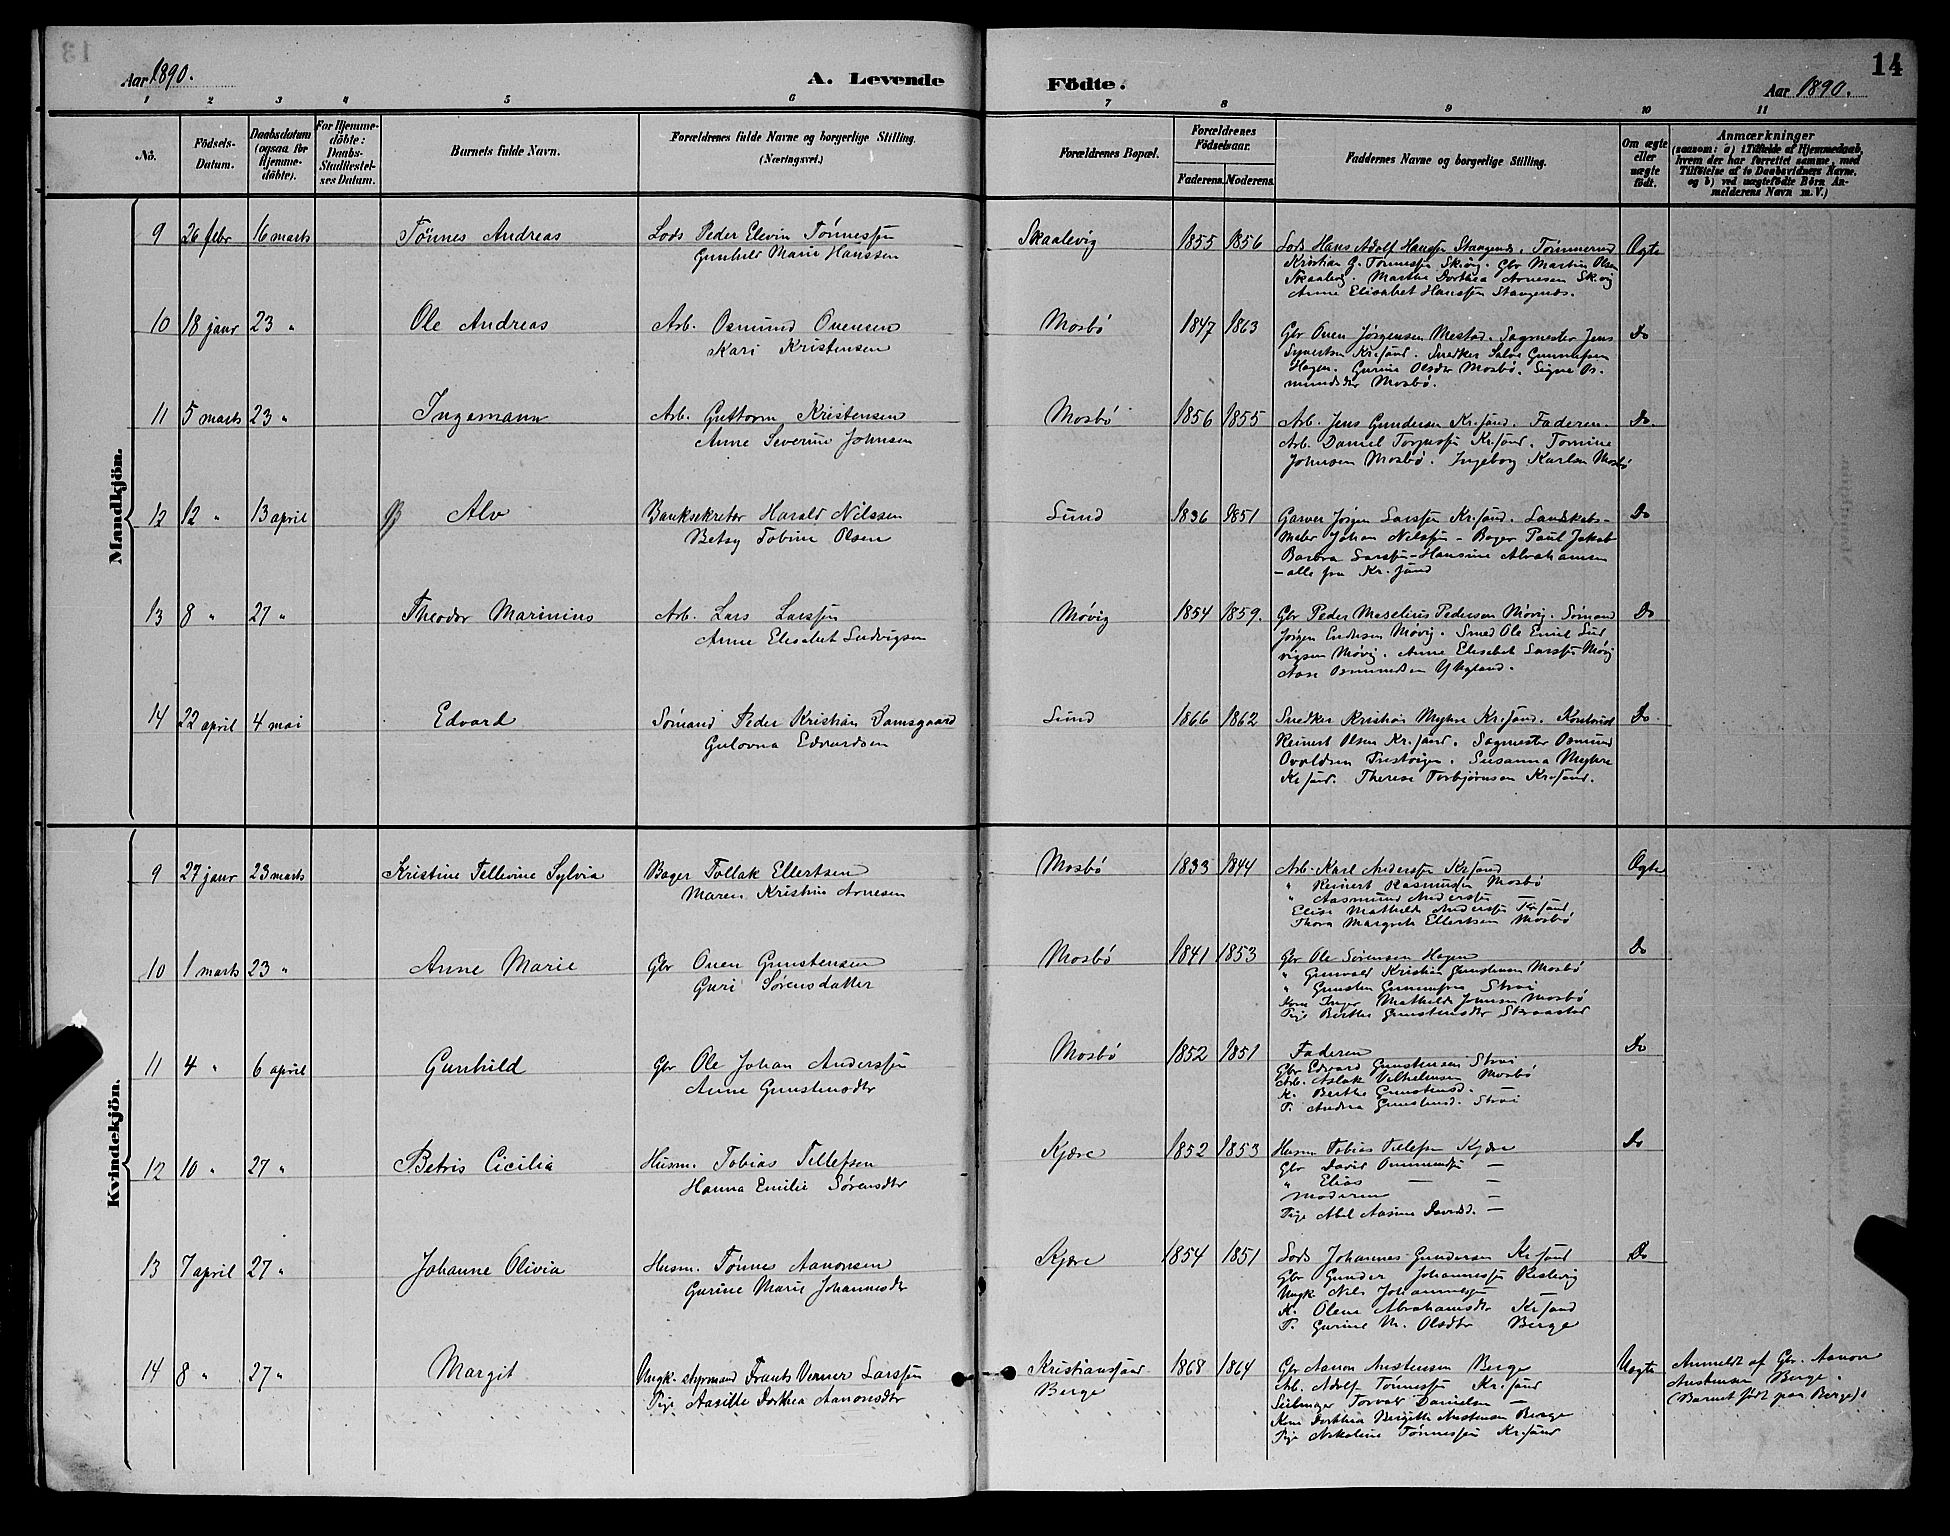 Aar 1890.
A. Levende Födte.
Aar 1890.
14
1 2 3 4 5 6 7 8 9 10 11
Nö.
Födsels-Datum.
Daabsdatum (ogsaa for Hjemme-döbte).
For Hjemme-döbte: Daabs-Stadfæstel-ses Datum.
Barnets fulde Navn.
Forældrenes fulde Navne og borgerlige Stilling.
(Næringsvei.)
Forældrenes Bopæl.
Forældrenes Födselsaar.
Faderens. Moderens.
Faddernes Navne og borgerlige Stilling.
Om ægte eller uægte födt.
Anmærkninger
(saasom: a) i Tilfælde af Hjemmedaab,
hvem der har forrettet samme, med
Tilföielse af to Daabsvidners Navne,
og b) ved uægtefödte Börn An-
melderens Navn m.V.)
Mandkjön.
9 26 febr 16 marts Tönnes Andreas Lods Peder Elevin Tønnessen Skaalevig 1855 1856 Lods Hans Adolf Hanssen Stangenes. Tømmermd Ægte
Gunhild Marie Hanssen Kristian G. Tønnessen Skvig. Gbr Martin Olsen
Skaalevig. Marthe Dorthea Arnesen Skvig
Anne Elisabet Hanssen Stangenes.
10 18 janr 23 " Ole Andreas Arb. Osmund Ovensen Mosbö 1847 1863 Gbr Oven Jørgensen Mestad. Sagmester Jens Do
Kari Kristensen Syvertsen Kr.sand. Snedker Salve Gunnufsen
Hagen. Gurine Olsdtr Mosbö. Signe Os-
mundsdtr Mosbö.
11 5 marts 23 " Ingemann Arb. Guttorm Kristensen Mosbö 1856 1855 Arb. Jens Gundersen Kr.sand. Faderen. Do.
Anne Severine Johnsen Arb. Daniel Torjussen Kr.sand. Tomine
Johnsen Mosbö. Ingeborg Karlsen Mosbö
12 12 " 13 april Alv Banksekretær Harald Nilssen Lund 1836 1851 Garver Jørgen Larssen Kr.sand. Landskabs- Do
Betsy Tobine Olsen Maler Johan Nilssen - Bager Paul Jakob
Barbra Larssen - Hansine Abrahamsen
- alle fra Kr.sand
13 8 " 27 " Theodor Marinius Arb. Lars Larssen Møvig 1854 1859. Gbr Peder Meselius Pedersen Møvig. Sømand Do
Anne Elisabet Ludvigsen Jørgen Endresen Møvig. Smed Ole Emil Lud
vigsen Møvig. Anne Elisabet Larssen Møvig
Aase Osmundsen
14 22 april 4 mai Edvard Sømand Peder Kristian Damsgaard Lund 1866 1862 Snedker Kristian Myhre Kr.sand. Do.
Gulovna Edvardsen Reinert Olsen Kr.sand. Sagmester Osmund
Susanna Myhre
Kr.sand. Therese Torbjørnsen Kr.sand.
Kvindekjön.
9 27 janr 23 marts Kristine Tellevine Sylvia Bager Tollak Ellertsen Mosbö 1833 1844 Arb. Karl Anderssen Kr.sand Ægte
Maren Kristine Arnesen " Reinert Rasmussen Mosbö
" Aasmund Anderssen
Elise Mathilde Anderssen Kr.sand
Thora Margrete Ellertsen Mosbö
10 1 marts 23 " Anne Marie Gbr Oven Gunstensen Mosbö 1841 1853 Gbr Ole Sørensen Hagen Do
Guri Sørensdatter " Gunvald Kristian Gunstensen Mosbö
" Gunsten Gunnufsen Strai
Kone Inger Mathilde Jonsen Mosbö
Pige Berthe Gunstensdtr
11 4 " 6 april Gunhild Gbr Ole Johan Anderssen Mosbö 1852 1851 Faderen Do
Anne Gunstensdtr Gbr Edvard Gunstensen Strai
Arb. Aslak Vilhelmsen Mosbö
K. Berthe Gunstensd.
P. Andrea Gunstensd. Strai
12 10 " 27 " Betris Cicilia Husm. Tobias Tellefsen Kjære 1852 1853 Husm Tobias Tellefsen Kjære Do
Hanna Emilie Sørensdtr Gbr David Ommundsen —
" Elias — —
Moderen —
Pige Abel Aasine Davidsd. —
13 7 april 27 " Johanne Olivia Husm. Tønnes Aanonsen Kjære 1854 1851 Lods Johannes Gundersen Kr.sand Do
Gurine Marie Johannesdtr Gbr Gunder Johannessen
Ungk Nils Johannessen
K. Olene Abrahamsdtr Kr.sand
P. Gurine M. Olsdtr Berge
14 8 " 27 " Margit Ungk. styrmand Frants Verner Larssen Kristianssand 1868 1864 Gbr Aanon Austensen Berge Uægte Anmeldt af Gbr. Aanon
Pige Aasille Dorthea Aanonsdtr Berge Arb. Adolf Tønnessen Kr.sand Austensen Berge.
Seilmager Torvald Danielsen — (Barnet födt paa Berge).
Kone Dorthea Birgitte Austensen Berge
Pige Nikoline Tønnessen Kr.sand